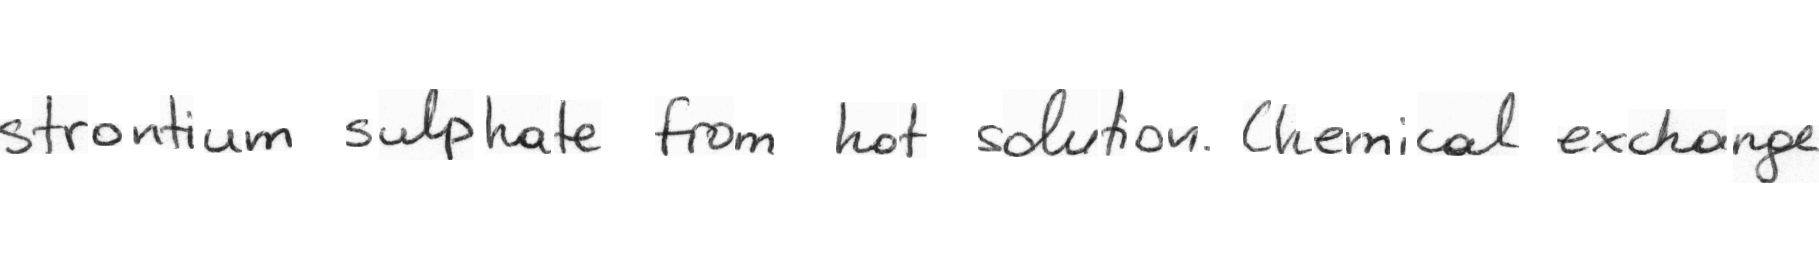 strontium sulphate from hot solution. Chemical exchange